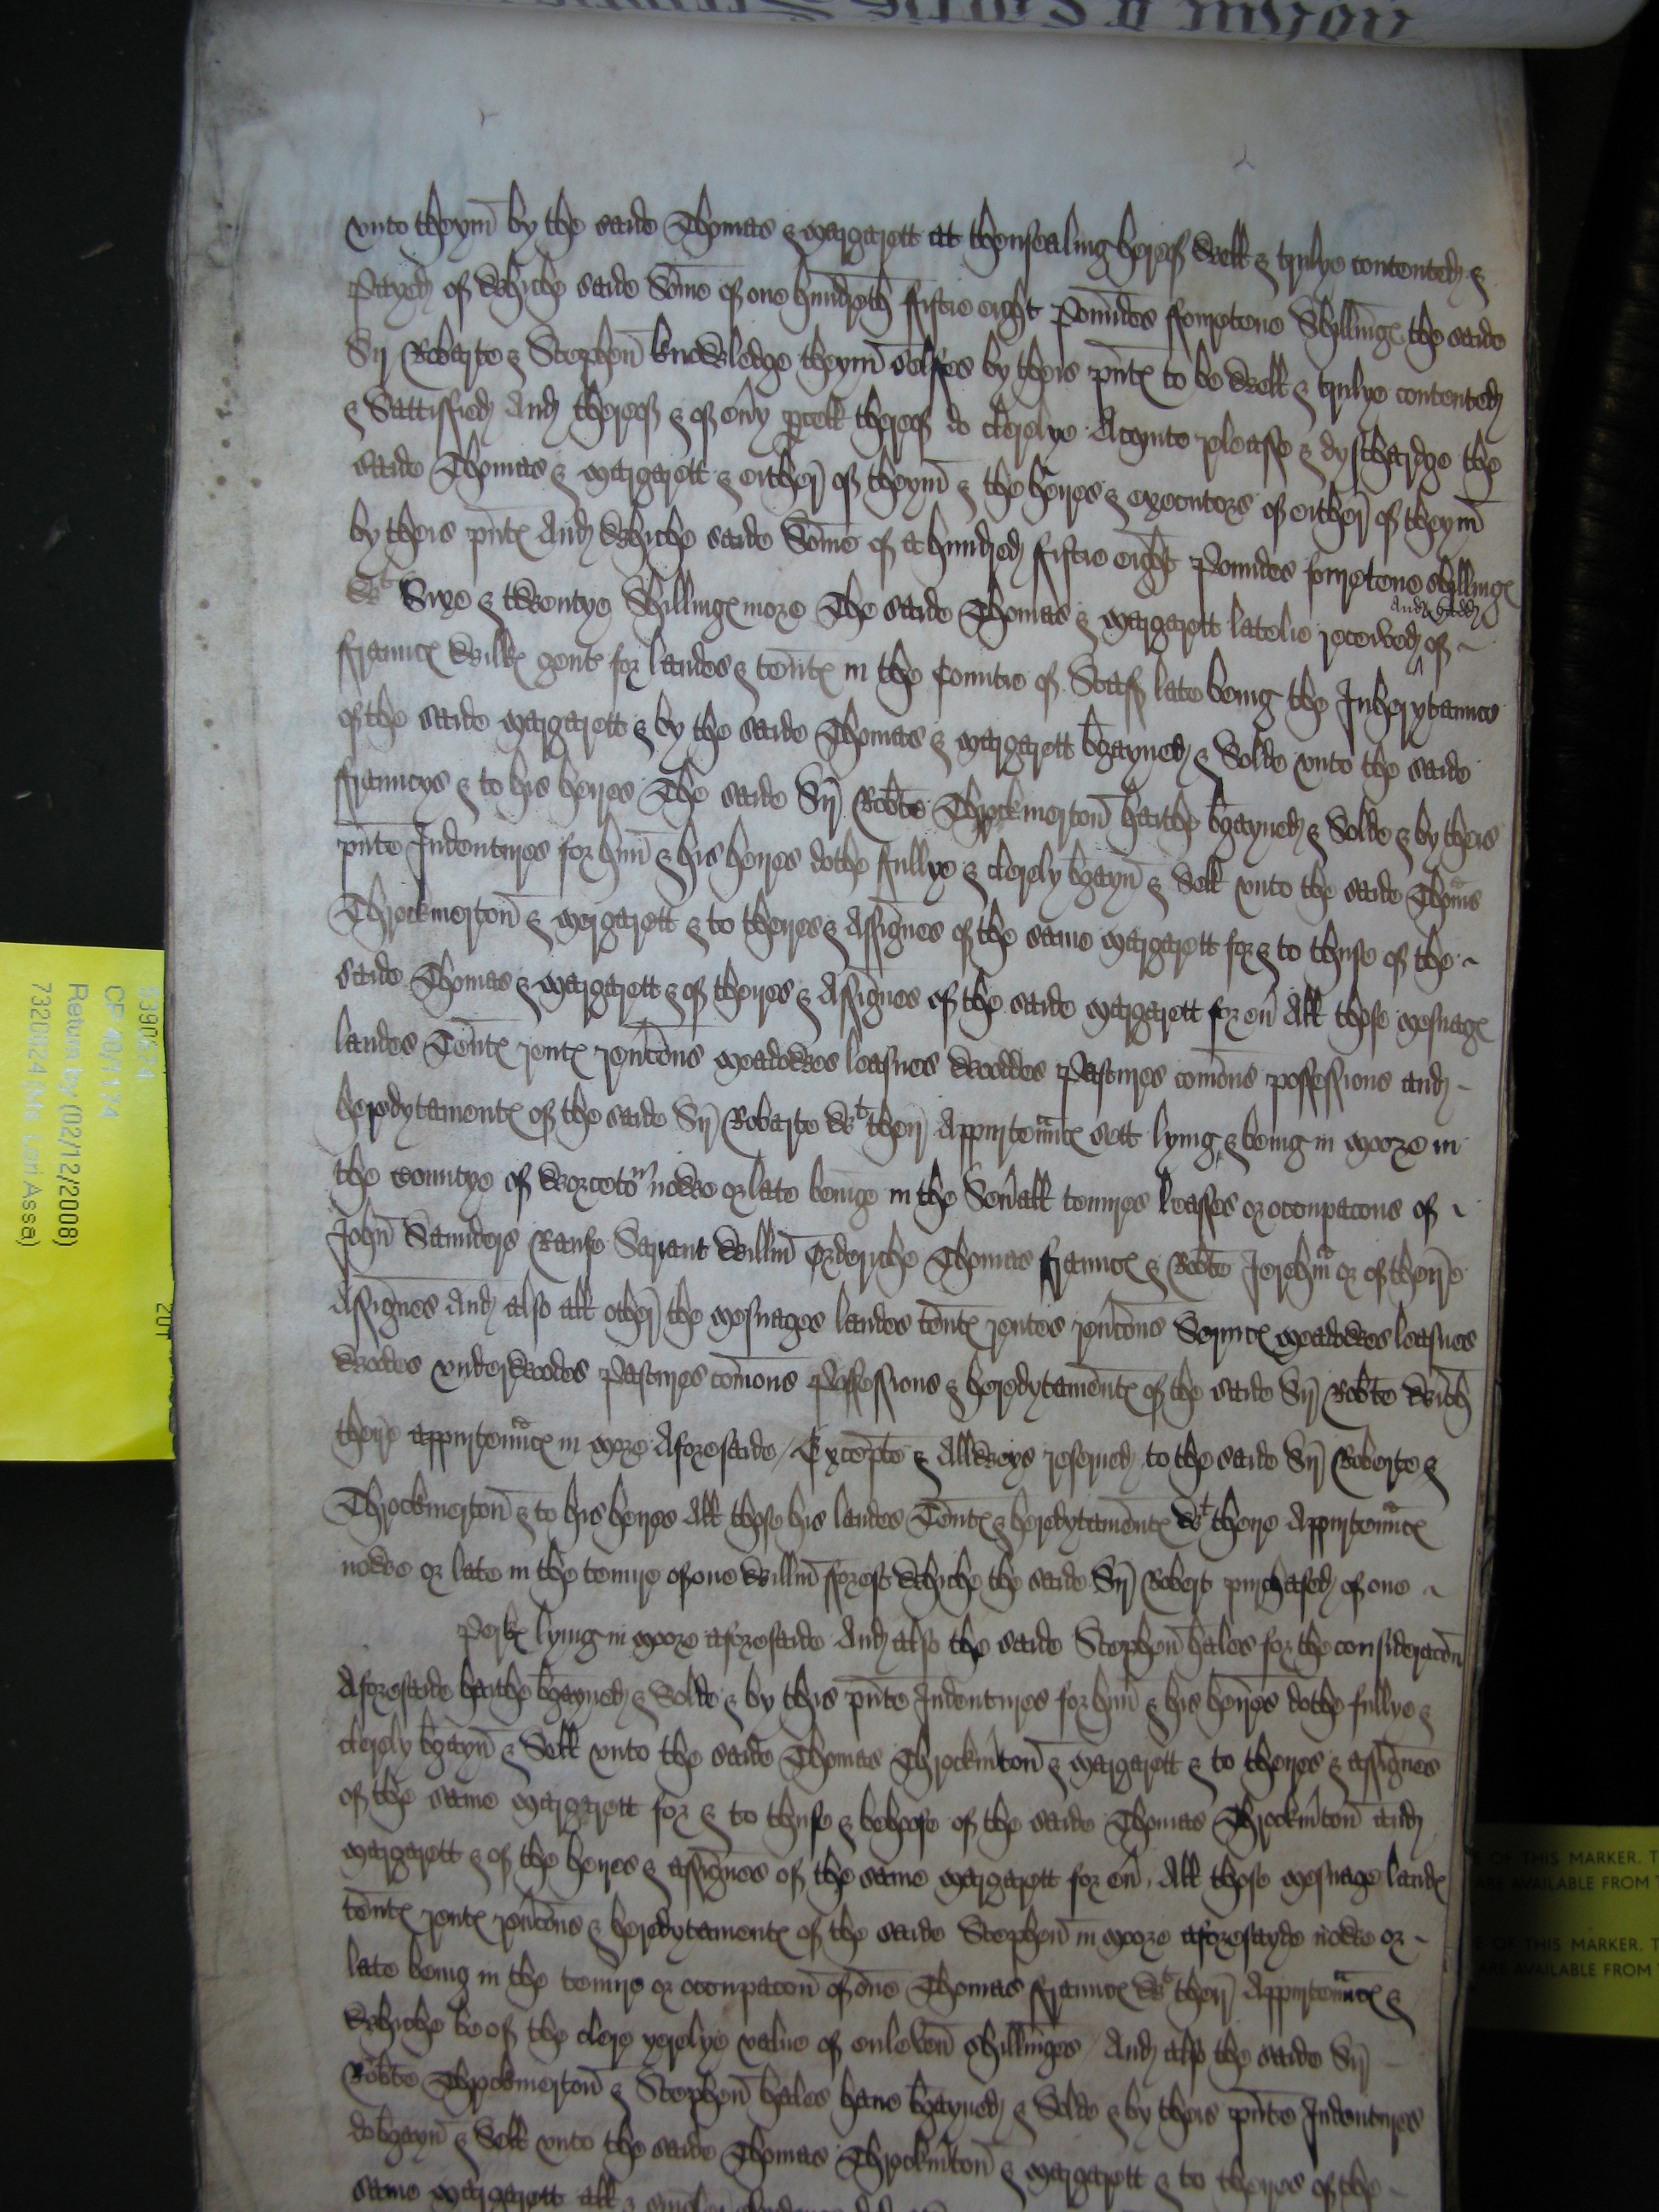 vnto theym by the saide Thomas & Margarett at thensealing hereof Well & trulye contented &
Payed of Whiche saide Some of one hundreth fiftie eight Poundes fourtene Shyllingꝭ the saide
Sir Robarte & Stephen knowledge theym selffes by theis pntꝭ to be Well & trulye contented
& Sattisfied And thereof & of eny pcell thereof do clerelye Acquite release & dyscharge the
saide Thomas & Margarett & either of theym & the heires & executors of either of theym
by theis pntꝭ And Whiche saide Some of a hundred fiftie eight Poundes fourtene shyllingꝭ
Wt Sixe & twentye Shillingꝭ more The saide Thomas & Margarett latelie receaved And hadd of
Frauncꝭ Wilkꝭ gent for landes & tentꝭ in the Countie of Staff late being the Inherytaunce
of the saide Margarett & by the saide Thomas & Margarett bgayned & Solde vnto the saide
Frauncys & to his heires The saide Sir Robte Throckmerton hathe bgayned & Solde & by theis
pnte Indentures for him & his heires dothe fullye & clerely bgayn & Sell vnto the saide Thoms
Throckmerton & Margarett & to theires & Assignes of the same Margarett for & to thuse of the
saide Thomas & Margarett & of theires & Assignes of the saide Margarett for eu All those mesuagꝭ
landes Tentꝭ rentꝭ reucons meadowes leasues Wooddes Pastures comons possessions and
heredytamentꝭ of the saide Sir Robarte Wt their Appurtenncꝭ sett lying & being in Moore in
the Countye of Worcetor nowe or late beinge in the Seuall tenures leasses or occupacons of
John Saunders Raufe Sariant Willm Orderiche Thomas Frauncꝭ & Robte Jerehm or of theire
Assignes And also all other the mesuages landes tentꝭ rentes reucons Seruicꝭ meadowes leasues
Woodes vnderwoodes Pastures comons Possessions & heredytamentꝭ of the saide Sir Robte With
theire appurtenncꝭ in More Aforesaide / Excepte & Allweys reserued to the saide Sir Roberte &
Throckmerton & to his heires All those his landes Tentꝭ & heredytamentꝭ Wt theire Appurtenncꝭ
nowe or late in the tenure of one Willm fforest Whiche the saide Sir Robert purchased of one
Perkꝭ lying in Moore aforesaide And also the saide Stephen hales for the consideracon
Aforesaide hathe bgayned & Solde & by this pnte Indentures for him & his heires dothe fullye &
clerely bgayn & Sell vnto the saide Thomas Throckmton & Margarett & to theires & assignes
of the same Margarett for & to thuse & behoofe of the saide Thomas Throckmton and
Margarett & of the heires & assignes of the same Margarett for eu All those mesuage landꝭ
tentꝭ rentꝭ reucons & heredytamentꝭ of the saide Stephen in Moore aforesayde nowe or
late being in the tenure or occupacon of one Thomas Frauncꝭ Wt their Appurtenncꝭ &
Whiche be of the clere yerelye value of enleven shillinges / And also the saide Sir
Robte Throckmerton & Stephen hales haue bgayned & Solde & by theis pnte Indentures
do bgayn & Sell vnto the saide Thomas Throckmton & Margarett & to theires of the
same Margarett all &
CP 40/1174
Return by (02/12/2008)
7320824 (Ms Lori Assa)
OF THIS MARKER. T
ARE AVAILABLE FROM
OF THIS MARKER. T
ARE AVAILABLE FROM